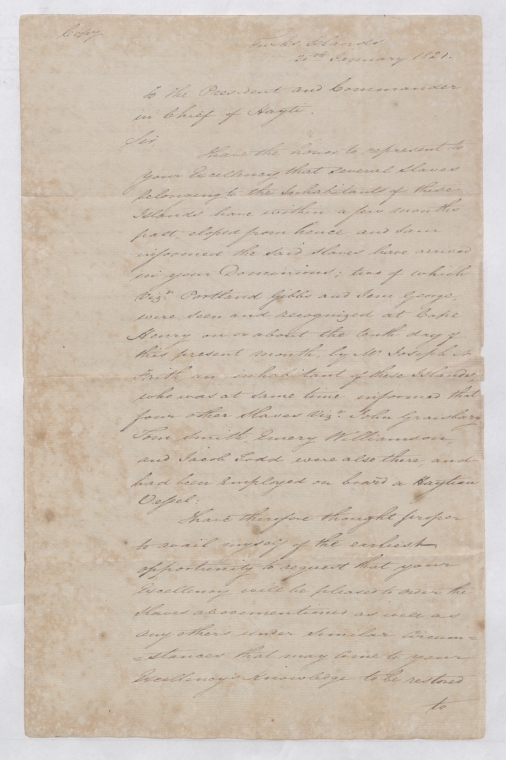 Copy
Turks Islands
20th January 1821.
to the President and Commander
in Chief of Hayti.
Sir
I have the honor to represent to
your Excellency that several Slaves
belonging to the Inhabitants of these
Islands have within a few months
past eloped from hence and I am
informed the said slaves have arrived
in your Dominions; two of which
Vizt. Portland Gibbs and Sam George,
were seen and recognized at Cape
Henry on or about the tenth day of
this present month, by Mr. Joseph
Frith an inhabitant of these Islands,
who was at same time informed that
four other Slaves Vizt. John
Tom Smith, Emery Williamson,
and Jacob Todd were also there and
had been employed on board a Haytian
Vessel;
I have therefore thought proper
to avail myself of the earliest
opportunity to request that your
Excellency will be pleased to order the
Slaves abovementioned as well as
any others under Similar Circum-
-stances that may come to your
Excellency's knowledge to be restored
to